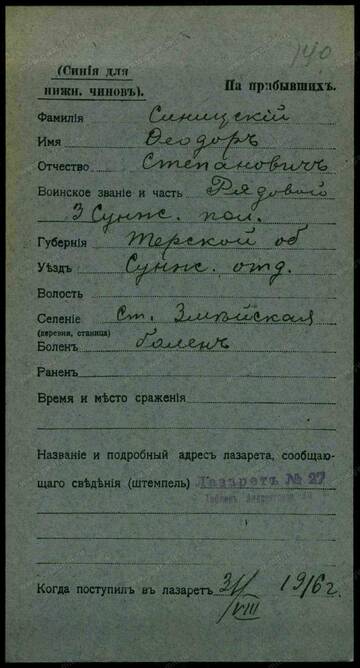 140
(Синія для
нижн. чиновъ).
На прибывшихъ.
Фамилія Синицскій
Имя Ѳеодоръ
Отчество Степановичъ
Воинское званіе и часть Рядовой
3 Сунж. пол.
Губернія Терской об
Уѣздъ Сунж. отд.
Волость
Селеніе Ст. Змѣйская
(деревня, станица)
Боленъ боленъ
Раненъ
Время и мѣсто сраженія
Названіе и подробный адресъ лазарета, сообщаю-
щаго свѣдѣнія (штемпель) Лазаретъ № 27
Когда поступилъ въ лазаретъ 31/VIII 1916 г.